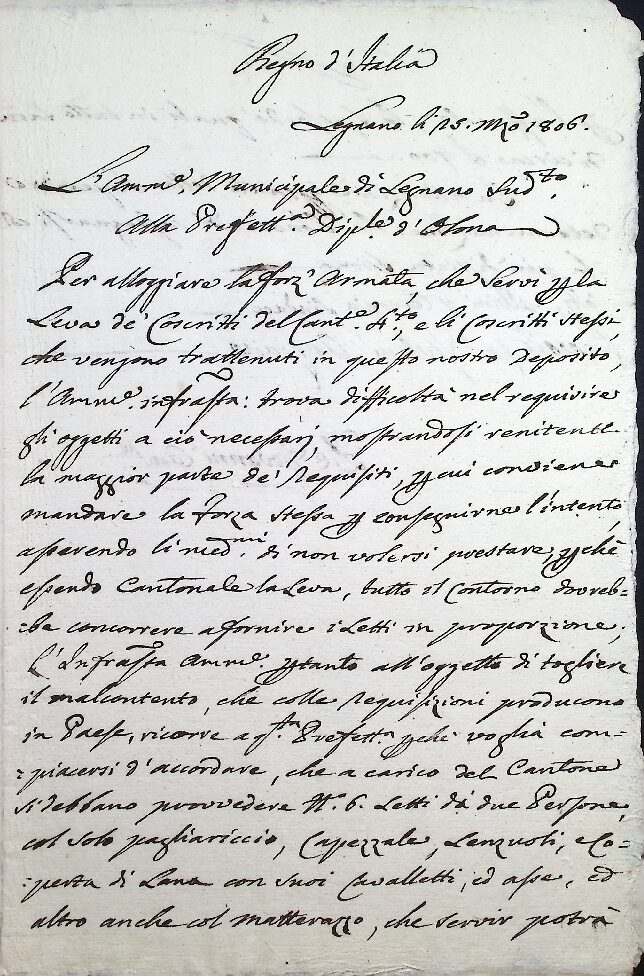 Regno d'Italia
Legnano li 15. Mzo 1806.
L'Amme. Municipale di Legnano Sudto.
Alla Prefetta. Diple. d'Olona
Per alloggiare la forz' Armata, che servì p la
Leva de' Coscritti del Cante. 4to., e li Coscritti stessi,
che vengono trattenuti in questo nostro Deposito,
l'Amme. infrasta: trova difficoltà nel requirire
gli oggetti a ciò necessarj, mostrandosi renitente
la maggior parte de' Requisiti, p cui conviene
mandare la Forza stessa p conseguirne l'intento,
asserendo li medmi. di non volersi prestare, pchè
essendo Cantonale la Leva, tutto il Contorno dovreb=
=be concorrere a fornire i Letti in proporzione.
L'Infrasta Amme. ptanto all'oggetto di togliere
il malcontento, che colle Requisizioni producono
in Paese, ricorre a qta. Prefetta pchè voglia com=
=piacersi d'accordare, che a carico del Cantone
si debbano provvedere N.° 6. Letti da due Persone,
col solo pagliariccio, Capezzale, Lenzuoli, e Co=
=perta di Lana con suoi Cavalletti, ed asse, ed
altro anche col matterazzo, che servir potrà